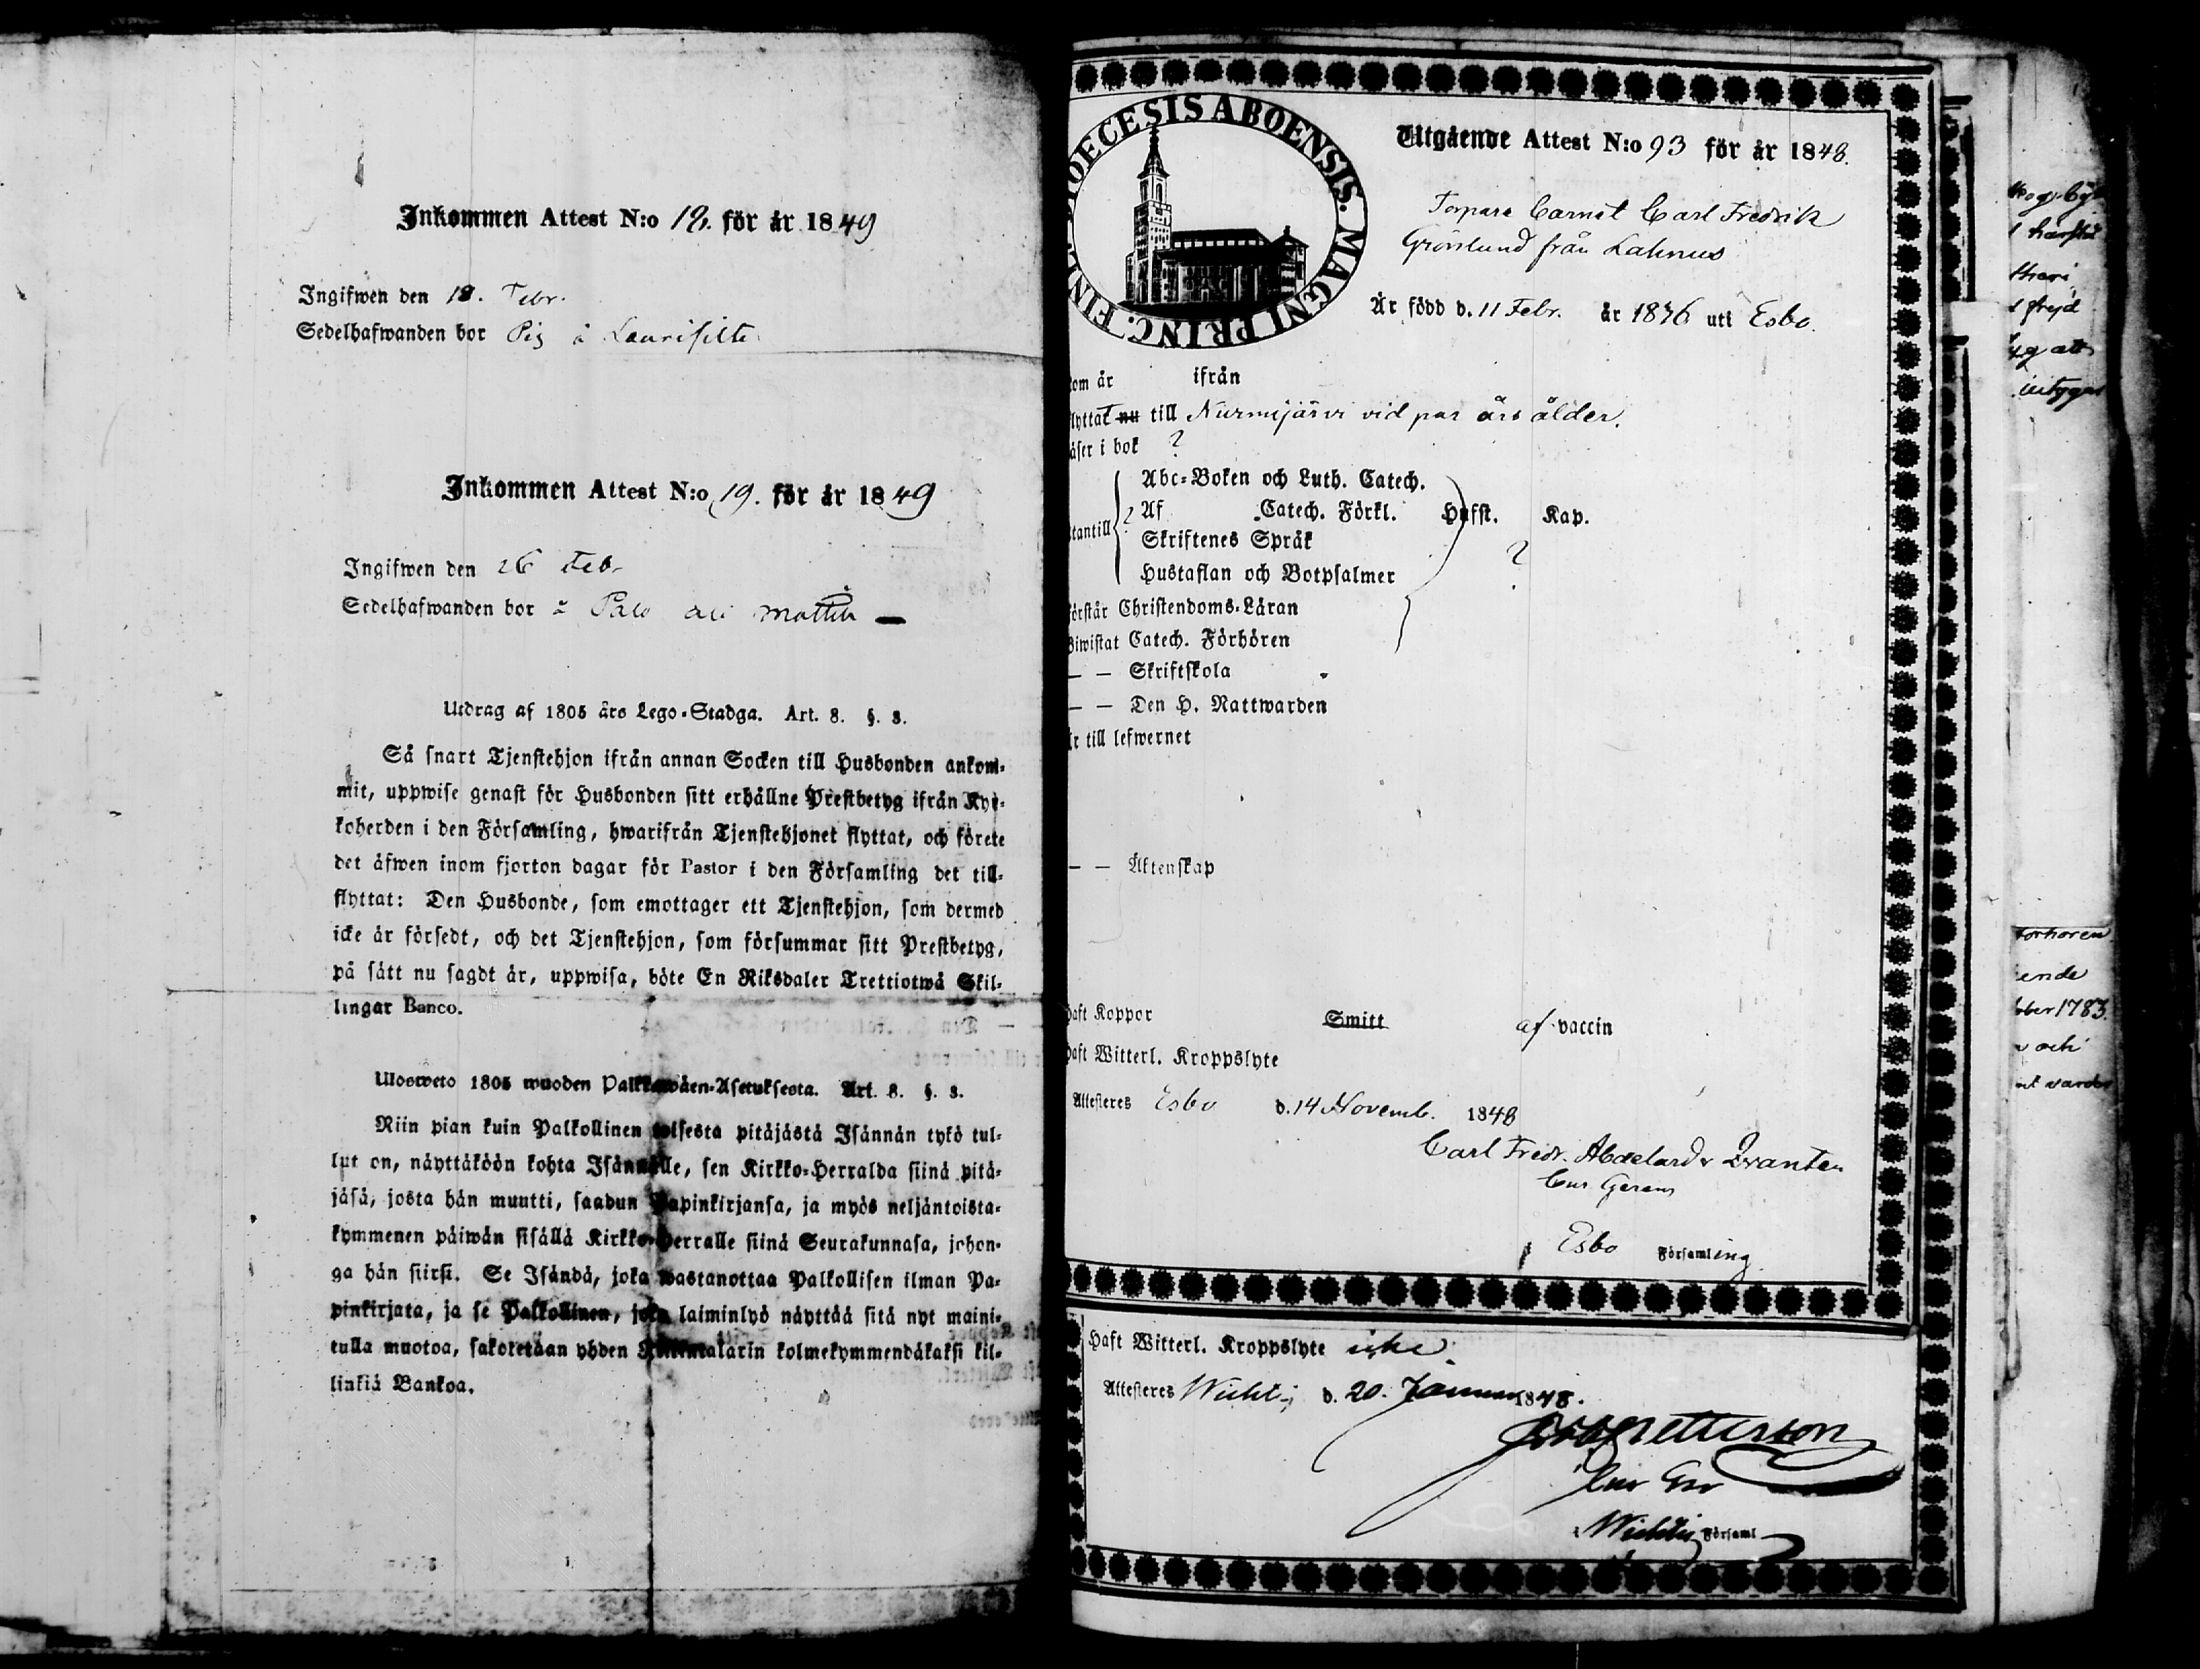 Inkommen Attest N:o 18. för år 1849
Ingifwen den 18. Febr.
Sedelhafwanden bor Pig å Laurisilta
Inkommen Attest N:o 19. för år 1849
Ingifwen den 26 Feb.
Sedelhafwanden bor å Palo
Utdrag af 1805 års Lego-Stadga. Art. 8. §. 3.
Så snart Tjenstehjon ifrån annan Socken till Husbonden ankom-
mit, uppwise genast för Husbonden sitt erhållne Prestbetyg ifrån Kyr-
koherden i den Församling, hwarifrån Tjenstehjonet flyttat, och förete
det äfwen inom fjorton dagar för Pastor i den Församling det till-
flyttat: Den Husbonde, som emottager ett Tjenstehjon, som dermed
icke är försedt, och det Tjenstehjon, som försummar sitt Prestbetyg,
på sätt nu sagdt är, uppwisa, böte En Riksdaler Trettiotwå Skil-
lingar Banco.
Ulosweto 1805 wuoden Palkkawäen-Asetuksesta. Art. 8. §. 3.
Niin pian kuin Palkollinen toisesta pitäjästä Isännän tykö tul-
lut on, näyttäköön kohta Isännälle, sen Kirkko-Herralda siinä pitä-
jäsä, josta hän muutti, saadun Papinkirjansa, ja myös neljäntoista-
kymmenen päiwän sisällä Kirkko-Herralle siinä Seurakunnasa, johon-
ga hän siirsi. Se Isändä, joka wastanottaa Palkollisen ilman Pa-
pinkirjata, ja se Palkollinen, joka laiminlyö näyttää sitä nyt maini-
tulla muotoa, sakotetaan yhden Riikintalarin kolmekymmendäkaksi kil-
linkiä Bankoa.
DIOECESIS ABOENSIS. MAGNI PRINC. FINL.
Utgående Attest N:o 93 för år 1848.
Torpare Barnet Carl Fredrik
Grönlund från Lahnus
Är född d. 11 Febr. år 1836 uti Esbo.
kom år ifrån
flyttat nu till Nurmijärvi vid par års ålder.
läser i bok ?
utantill ? Abc-Boken och Luth. Catech.
Af Catech. Förkl. Hufst. Kap.
Skriftenes Språk ?
Hustaflan och Botpsalmer
förstår Christendoms-Läran
Biwistat Catech. Förhören
— — Skriftskola
— — Den H. Nattwarden
är till lefwernet
— — Äktenskap
haft Koppor Smitt af vaccin
haft Witterl. Kroppslyte
Attesteres Esbo d. 14 Novemb. 1848
Carl Fredr. Abdelard v Qvanten
Cur. Gerens
i Esbo Församling.
Haft Witterl. Kroppslyte icke.
Attesteres Wichtis d. 20. Januari 1848.
Wichtis Församl
förhören
ende
ber 1783.
och